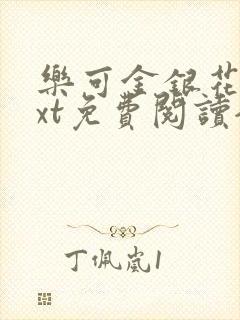 樂可金銀花
xt免費閱讀
丁佩嵐1